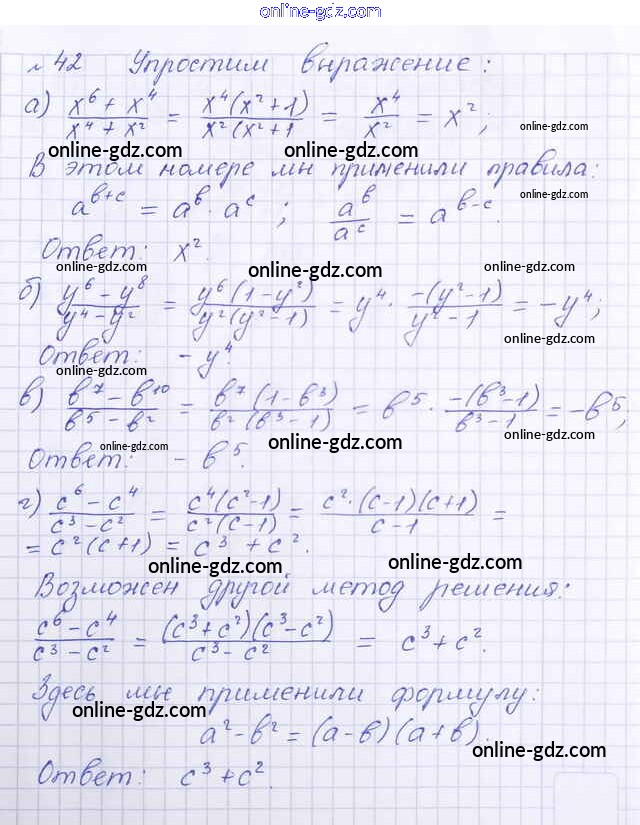 online-gdz.com
№ 42 Упростим выражение:
а) (x⁶ + x⁴)/(x⁴ + x²) = (x⁴(x² + 1))/(x²(x² + 1) = x⁴/x² = x²;
online-gdz.com
online-gdz.com online-gdz.com
В этом номере мы применили правила:
online-gdz.com
a^(b+c) = a^b · a^c ; a^b/a^c = a^(b-c).
Ответ: x².
online-gdz.com
online-gdz.com online-gdz.com
б) (y⁶ - y⁸)/(y⁴ - y²) = (y⁶(1 - y²))/(y²(y² - 1)) = y⁴ · (-(y² - 1))/(y² - 1) = -y⁴;
online-gdz.com
Ответ: -y⁴.
online-gdz.com
в) (b⁷ - b¹⁰)/(b⁵ - b²) = (b⁷(1 - b³))/(b²(b³ - 1)) = b⁵ · (-(b³ - 1))/(b³ - 1) = -b⁵;
online-gdz.com online-gdz.com online-gdz.com
Ответ: - b⁵.
г) (c⁶ - c⁴)/(c³ - c²) = (c⁴(c² - 1))/(c²(c - 1)) = (c² · (c - 1)(c + 1))/(c - 1) =
= c²(c + 1) = c³ + c².
online-gdz.com online-gdz.com
Возможен другой метод решения:
(c⁶ - c⁴)/(c³ - c²) = ((c³ + c²)(c³ - c²))/(c³ - c²) = c³ + c².
Здесь мы применили формулу:
online-gdz.com
a² - b² = (a - b)(a + b).
online-gdz.com
Ответ: c³ + c².